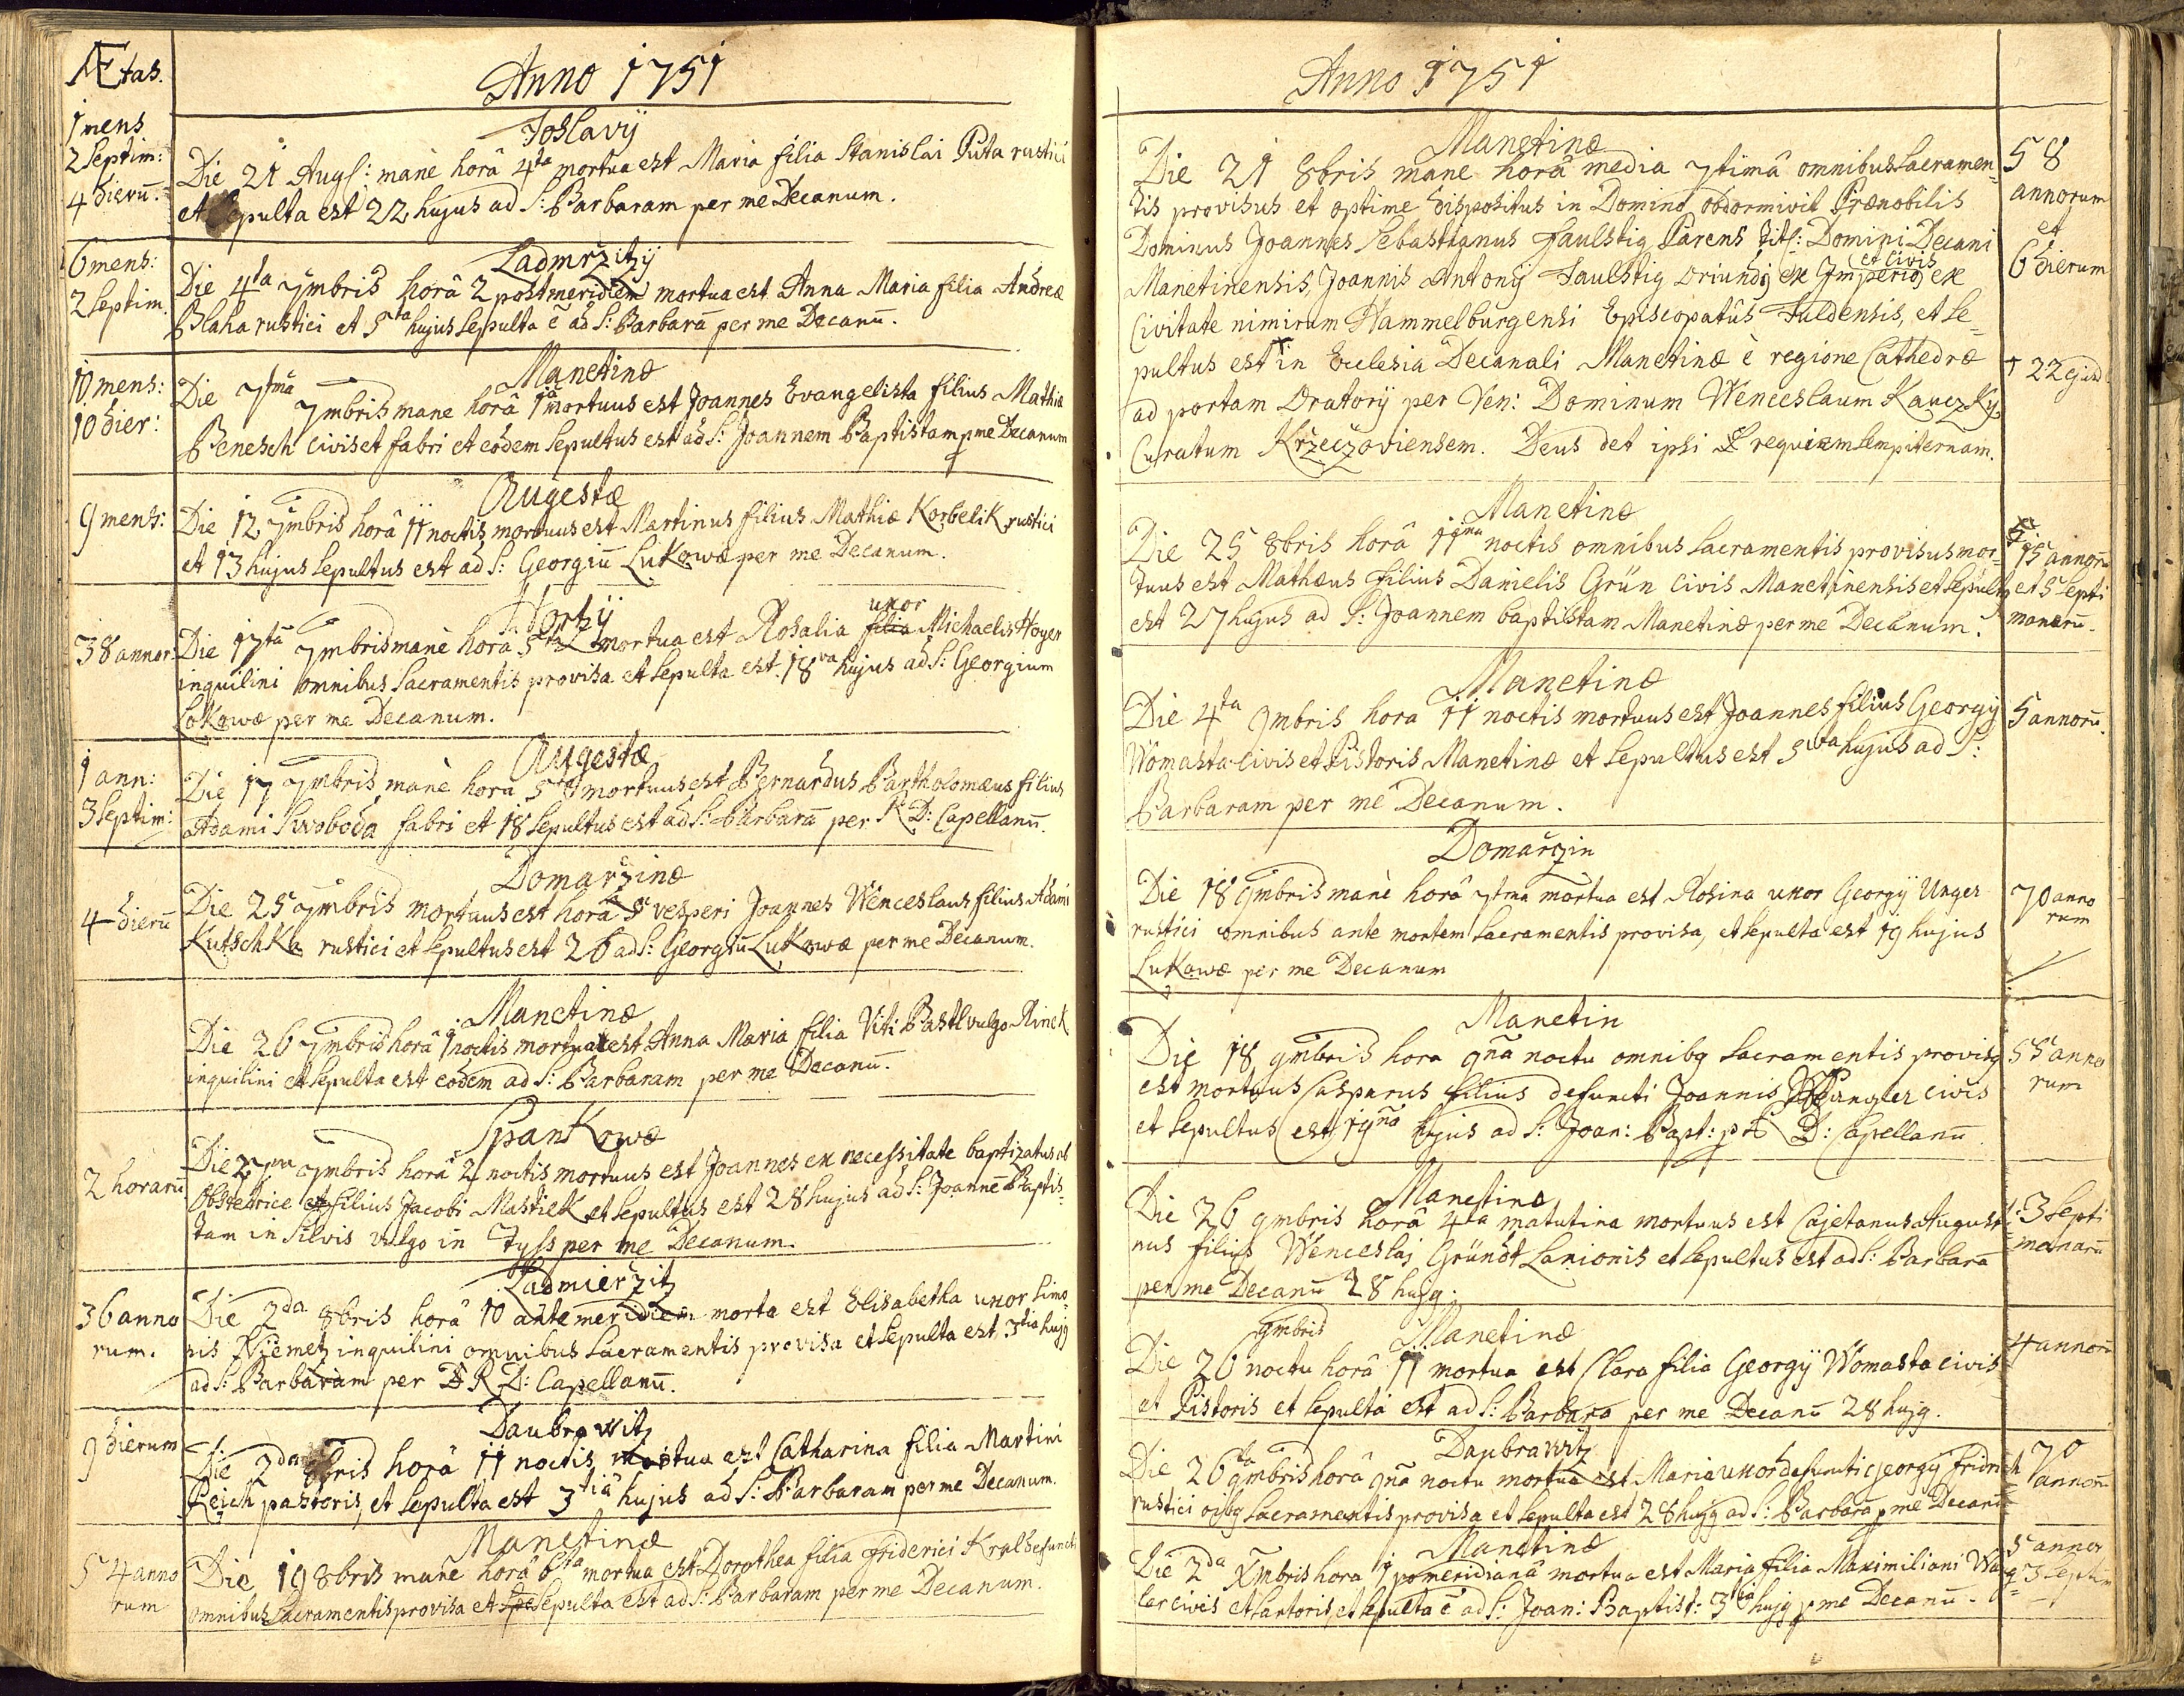 Ætas.
Anno 1751
1 mens
2 Septim:
4 dierū.
Joslavij
Die 21 Augs: manè horâ 4ta mortua est Maria filia Stanislai Puta rustici
et Sepulta est 22 hujus ad S: Barbaram per me Decanum.
6 mens:
2 Septim.
Ladmržitzij
Die 4ta 7mbris horâ 2 postmeridiem mortua est Anna Maria filia Andreæ
Blaha rustici et 5ta hujus Sepulta ē ad S: Barbarā per me Decanū.
10 mens:
10 dier:
Manetinæ
Die 7tmâ 7mbris mane horâ 1a mortuus est Joannes Evangelista filius Mathiæ
Benesch Civis et fabri et eodem Sepultus est ad S: Joannem Baptistam p me Decanum
9 mens:
Augestæ
Die 12 7mbris horâ 11 noctis mortuus est Martinus filius Mathiæ Korbelik rustici
et 13 hujus Sepultus est ad S: Georgiū Lukowæ per me Decanum.
38 annor:
Horkÿ
uxor
Die 17tâ 7mbris manè horâ 5ta mortua est Rosalia filia Michaelis Hoyer
inquilini omnibus Sacramentis provisa et Sepulta est 18va hujus ad S: Georgium
Lokowæ per me Decanum.
1 ann:
3 Septim:
Augestæ
Die 17 7mbris manè hora 5ta mortuus est Bernardus Bartholomæus filius
Adami Swoboda fabri et 18 Sepultus est ad S: Barbarā per R D: Capellanū.
4 dierū
Domaržinæ
Die 25 7mbris mortuus est horâ 5 vesperi Joannes Wenceslaus filius Adami
Kutschka rustici et Sepultus est 26 ad S: Georgiū Lukowæ per me Decanum.
Manetinæ
Die 26 7mbris horâ 1 noctis mortua est Anna Maria filia Viti Bastl vulgo Rinek
inquilini et Sepulta est eodem ad S: Barbaram per me Decanū.
2 horarū
Spankowæ
Die 27ma 7mbris horâ 2 noctis mortuus est Joannes ex necessitate baptizatus ab
Obstetrice et filius Jacobi Mastiek et Sepultus est 28 hujus ad S: Joannē Baptis=
tam in Silvis vulgo in Tyss per me Decanum.
36 anno
rum.
Ladmieržitz
Die 2da 8bris horâ 10 antemeridiem morta est Elisabetha uxor Simo=
nis Niemetz inquilini omnibus Sacramentis provisa et Sepulta est 3tia hujg
ad S: Barbaram per R D: Capellanū.
9 dierum
Daubrawitz
Die 2da 8bris horâ 11 noctis mortua est Catharina filia Martini
Reich pastoris, et Sepulta est 3tiâ hujus ad S: Barbaram per me Decanum.
54 anno
rum
Manetinæ
Die 19 8bris mane horâ 6ta mortua est Dorothea filia Friderici Kral defuncti
omnibus Sacramentis provisa et Sepulta est ad S: Barbaram per me Decanum.
Anno 1751
Manetinæ
Die 21 8bris mane horâ media 7timâ omnibus Sacramen=
tis provisus et optime dispositus in Domino obdormivit Prænobilis
Dominus Joannes Sebastianus Faulstig Parens Titl: Domini Decani
et Civis
Manetinensis, Joannis Antonij Faulstig Oriundj ex Imperio, ex
Civitate nimirum Hammelburgensi Episcopatûs Fuldensis, et Se=
pultus est + in Ecclesia Decanali Manetinæ è regione Cathedræ
ad portam Oratorij per Ven: Dominum Wenceslaum Kauczky
Curatum Kržeczoviensem. Deus det ipsi requiem Sempiternam.
58
annorum
et
6 dierum
+ 22 ejusd
Manetinæ
Die 25 8bris horâ 11ma noctis omnibus Sacramentis provisus mor=
tuus est Mathæus filius Danielis Grün Civis Manetinensis et Sepultg
est 27 hujus ad S: Joannem baptistam Manetinæ per me Decanum.
15 annorū
et 5 Septi
manarū.
Manetinæ
Die 4ta 9mbris hora 11 noctis mortuus est Joannes filius Georgij
Womasta Civis et Pistoris Manetinæ et Sepultus est 5ta hujus ad S:
Barbaram per me Decanum.
5 annorū.
Domaržin
Die 18 9mbris manè horâ 7tma mortua est Rosina uxor Georgij Unger
rustici omnibus ante mortem Sacramentis provisa, et Sepulta est 19 hujus
Lukowæ per me Decanum
70 anno
rum
Manetin
Die 18 9mbris hora 9nâ noctu omnibg Sacramentis provisg
est mortuus Casparus filius defuncti Joannis Pungler civis
et Sepultus est 19nâ hujus ad S: Joan: Bapt: p R D: Capellanū.
55 anno
rum
Manetinæ
Die 26 9mbris horâ 4ta matutina mortuus est Cajetanus Augusti=
nus filius Wenceslaj Gründt Lanionis et Sepultus est ad S: Barbarā
per me Decanū 28 hujg.
3 Septi
manarū
Manetinæ
9mbris
Die 26 noctu horâ 11 mortua est Clara filia Georgij Womasta civis
et Pistoris et Sepulta est ad S: Barbara per me Decanū 28 hujg.
4 annorū
Daubrawitz
Die 26ta 9mbris horâ 9nâ noctu mortua est Maria uxor defuncti Georgij Fridrich
rustici oībg Sacramentis provisa et Sepulta est 28 hujg ad S: Barbarā p me Decanū
70
annorū
Manetinæ
Die 2da Xmbris hora 1 pomeridianâ mortua est Maria filia Maximiliani Wag=
ler civis et Sartoris, et Sepulta ē ad S: Joan: Baptist: 3tia hujg p me Decanū.
5 annor
3 Septim